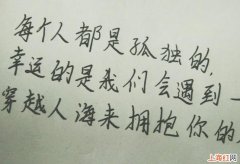 每个人都是孤独的,
幸运的是我们会遇到一
穿越人海来拥抱你的
上海红网